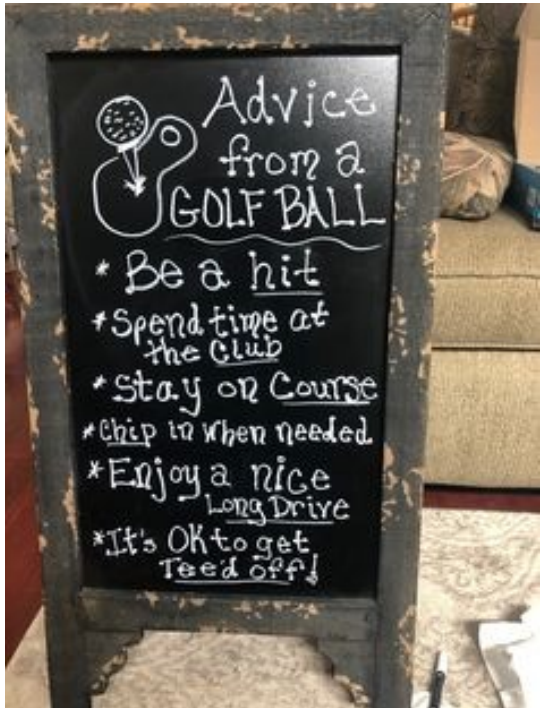 Advice
from a
GOLF BALL
* Be a hit
* Spend time at
the Club
* Stay on Course
* Chip in when needed
* Enjoy a nice
Long Drive
* It's OK to get
Tee'd off!